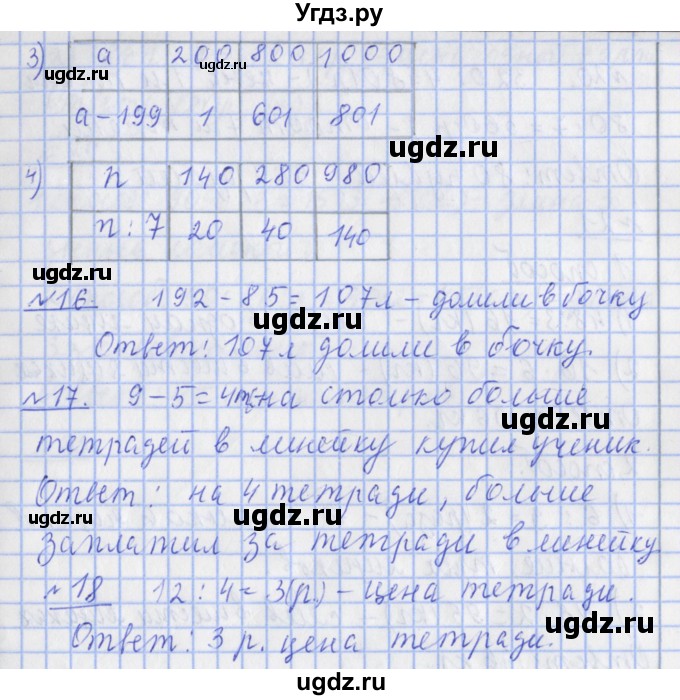 Угдз.ру
3) a 200 800 1000
a-199 1 601 801
4) n 140 280 980
n:7 20 40 140
№16. 192-85=107л-долили в бочку
Ответ: 107л долили в бочку.
№17. 9-5=4 на столько больше
тетрадей в линейку купил ученик.
Ответ: на 4 тетради, больше
заплатил за тетради в линейку
№18 12:4=3(р.)-цена тетради.
Ответ: 3 р. цена тетради.
ugdz.ru
ugdz.ru
ugdz.ru
ugdz.ru
ugdz.ru
ugdz.ru
ugdz.ru
ugdz.ru
ugdz.ru
ugdz.ru
ugdz.ru
ugdz.ru
ugdz.ru